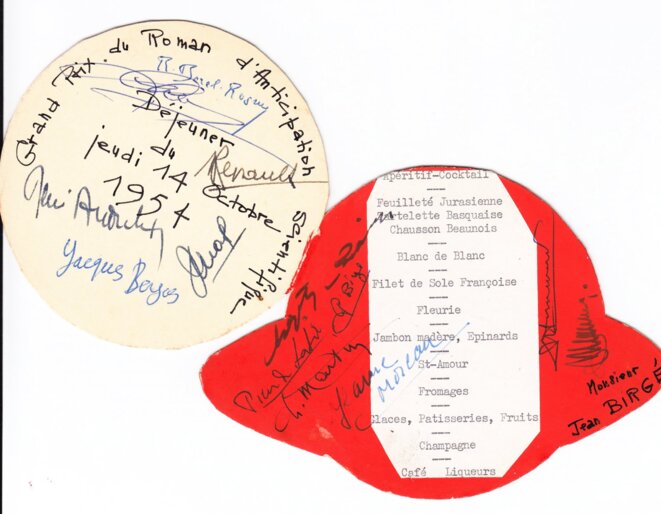 Grand Prix du Roman d'Anticipation Scientifique
Déjeuner
du
jeudi 14 Octobre
1954
R. Borel-Rosny
Renault
Jacques Bergier
Apéritif-Cocktail
Feuilleté Jurasienne
Tartelette Basquaise
Chausson Beaunois
Blanc de Blanc
Filet de Sole Françoise
Fleurie
Jambon madère, Epinards
St-Amour
Fromages
Glaces, Patisseries, Fruits
Champagne
Café Liqueurs
Birgé
Moreau
Monsieur
Jean BIRGÉ